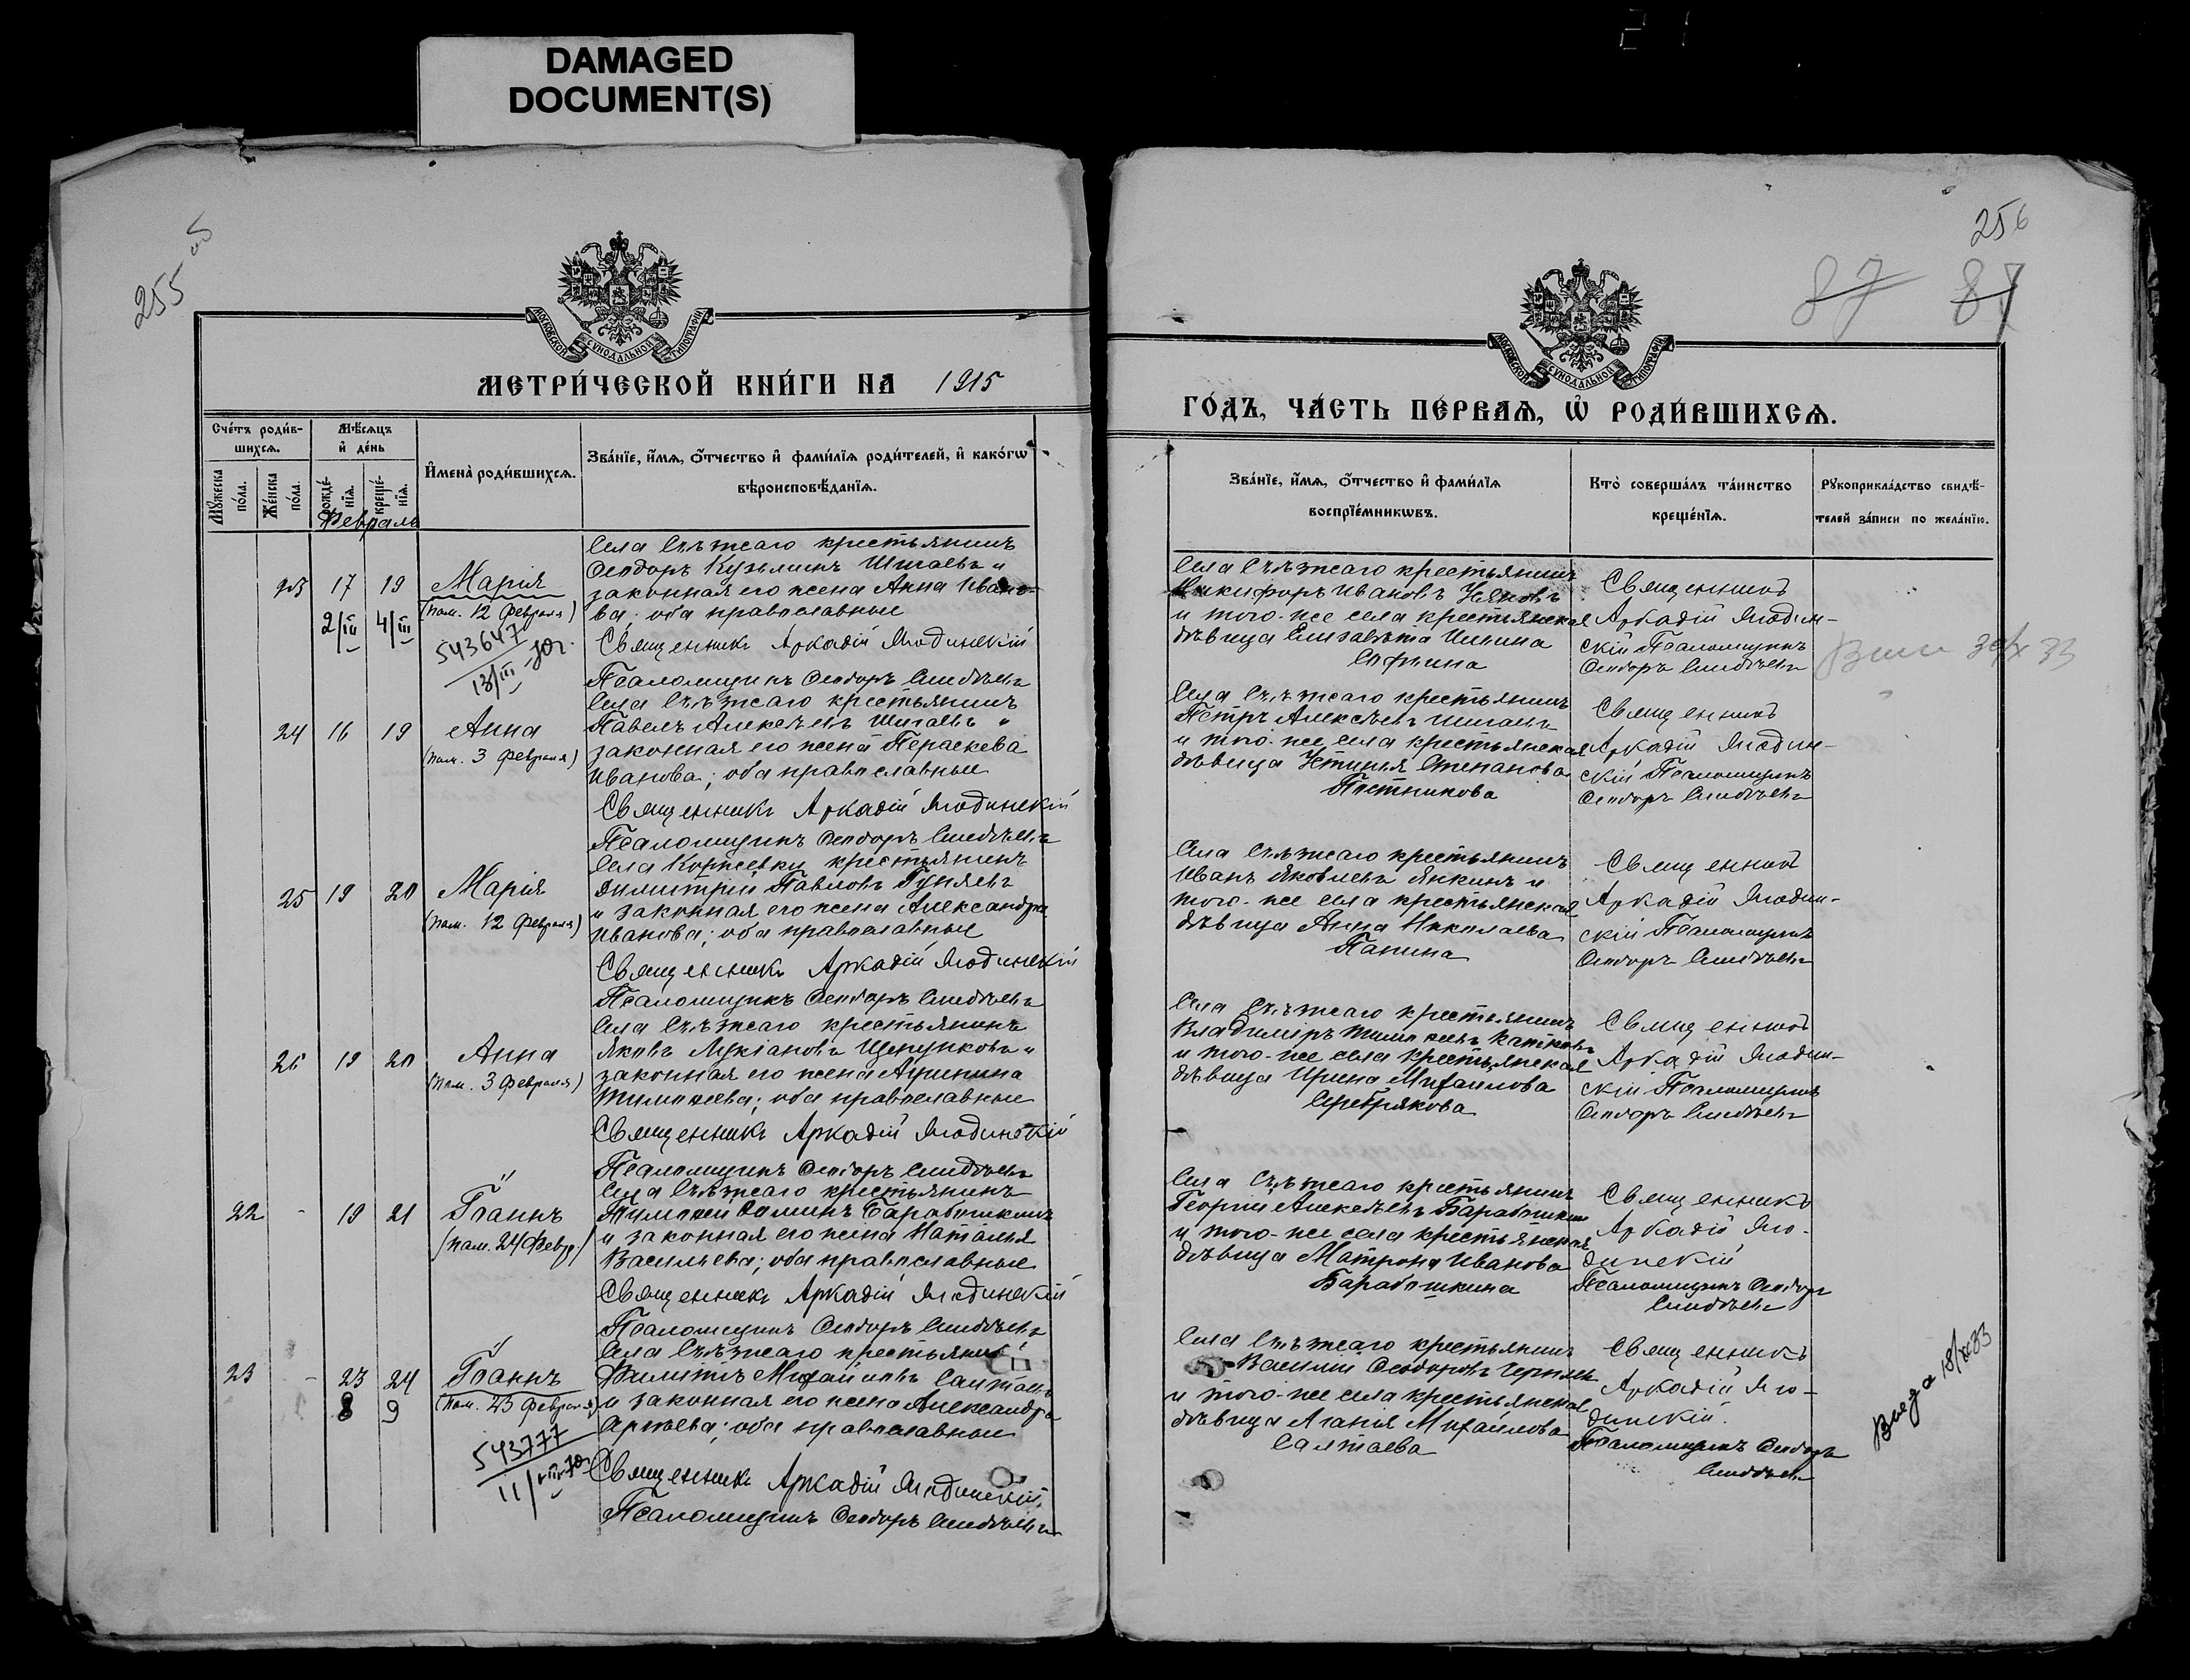 DAMAGED
DOCUMENT(S)
255 об
256
87 87
МОСКОВСКОЙ СѴНОДАЛЬНОЙ ТИПОГРАФІИ
МЕТРИ́ЧЕСКОЙ КНИ́ГИ НА 1915
Сче́тъ роди́в-
шихсѧ.
Мѣ́сѧцъ
и҆ де́нь
Мꙋ́жеска
по́ла.
Же́нска
по́ла.
рожде́-
нїѧ.
креще́-
нїѧ.
И҆мена̀ роди́вшихсѧ.
Зва́нїе, и҆́мѧ, ѻ҆́тчество и҆ фами́лїѧ роди́телей, и҆ како́гѡ
вѣроисповѣ́данїѧ.
Февраль
23 17 19 Марія
(пам. 12 Февраля)
2/III 4/III
543647
13/III
Села Съѣзжаго крестьянинъ
Ѳеодоръ Кузьминъ Шигаевъ и
законная его жена Анна Ивано-
ва; оба православные
Священникъ Аркадій Ягодинскій
Псаломщикъ Ѳеодоръ
24 16 19 Анна
(пам. 3 Февраля)
Села Съѣзжаго крестьянинъ
Павелъ Алексѣевъ Шигаевъ и
законная его жена Пераскева
Иванова; оба православные
Священникъ Аркадій Ягодинскій
Псаломщикъ Ѳеодоръ
25 19 20 Марія
(пам. 12 Февраля)
Села крестьянинъ
Димитрій Павловъ Гуняевъ
и законная его жена Александра
Иванова; оба православные
Священникъ Аркадій Ягодинскій
Псаломщикъ Ѳеодоръ
26 19 20 Анна
(пам. 3 Февраля)
Села Съѣзжаго крестьянинъ
Яковъ Лукіановъ Щепунковъ и
законная его жена Агрипина
Тимоѳеева; оба православные
Священникъ Аркадій Ягодинскій
Псаломщикъ Ѳеодоръ
22 - 19 21 Іоаннъ
(пам. 24 Февр.)
Села Съѣзжаго крестьянинъ
Тимоѳей Ѳоминъ Барабошкинъ
и законная его жена Наталья
Васильева; оба православные
Священникъ Аркадій Ягодинскій
Псаломщикъ Ѳеодоръ
23 - 23 24 Іоаннъ
(пам. 23 Февраля)
8 9
543777
11/III
Села Съѣзжаго крестьянинъ
Филиппъ Михайловъ Салтаевъ
и законная его жена Александра
оба православные
Священникъ Аркадій Ягодинскій
Псаломщикъ Ѳеодоръ
МОСКОВСКОЙ СѴНОДАЛЬНОЙ ТИПОГРАФІИ
ГО́ДЪ, ЧА́СТЬ ПЕ́РВАѦ, Ѽ РОДИ́ВШИХСѦ.
Зва́нїе, и҆́мѧ, ѻ҆́тчество и҆ фами́лїѧ
воспрїе́мникѡвъ.
Кто̀ соверша́лъ та́инство
креще́нїѧ.
Рꙋкоприкла́дство свидѣ́-
телей за́писи по жела́нїю.
Села Съѣзжаго крестьянинъ
Никифоръ Ивановъ
и того-же села крестьянская
дѣвица Елизавета Ильина
Священникъ
Аркадій Ягодин-
скій Псаломщикъ
Ѳеодоръ
Села Съѣзжаго крестьянинъ
Петръ Алексѣевъ Шигаевъ
и того-же села крестьянская
дѣвица Устинья Степанова
Постникова
Священникъ
Аркадій Ягодин-
скій Псаломщикъ
Ѳеодоръ
Села Съѣзжаго крестьянинъ
Иванъ Яковлевъ Янкинъ и
того-же села крестьянская
дѣвица Анна Николаева
Панина
Священникъ
Аркадій Ягодин-
скій Псаломщикъ
Ѳеодоръ
Села Съѣзжаго крестьянинъ
Владиміръ Тимоѳеевъ
и того-же села крестьянская
дѣвица Ирина Михайлова
Серебрякова
Священникъ
Аркадій Ягодин-
скій Псаломщикъ
Ѳеодоръ
Села Съѣзжаго крестьянинъ
Георгій Алексѣевъ Барабошкинъ
и того-же села крестьянская
дѣвица Матрона Иванова
Барабошкина
Священникъ
Аркадій Яго-
динскій
Псаломщикъ Ѳеодоръ
Села Съѣзжаго крестьянинъ
Василій Ѳеодоровъ
и того-же села крестьянская
дѣвица Агапія Михайлова
Салтаева
Священникъ
Аркадій Яго-
динскій.
Псаломщикъ Ѳеодоръ